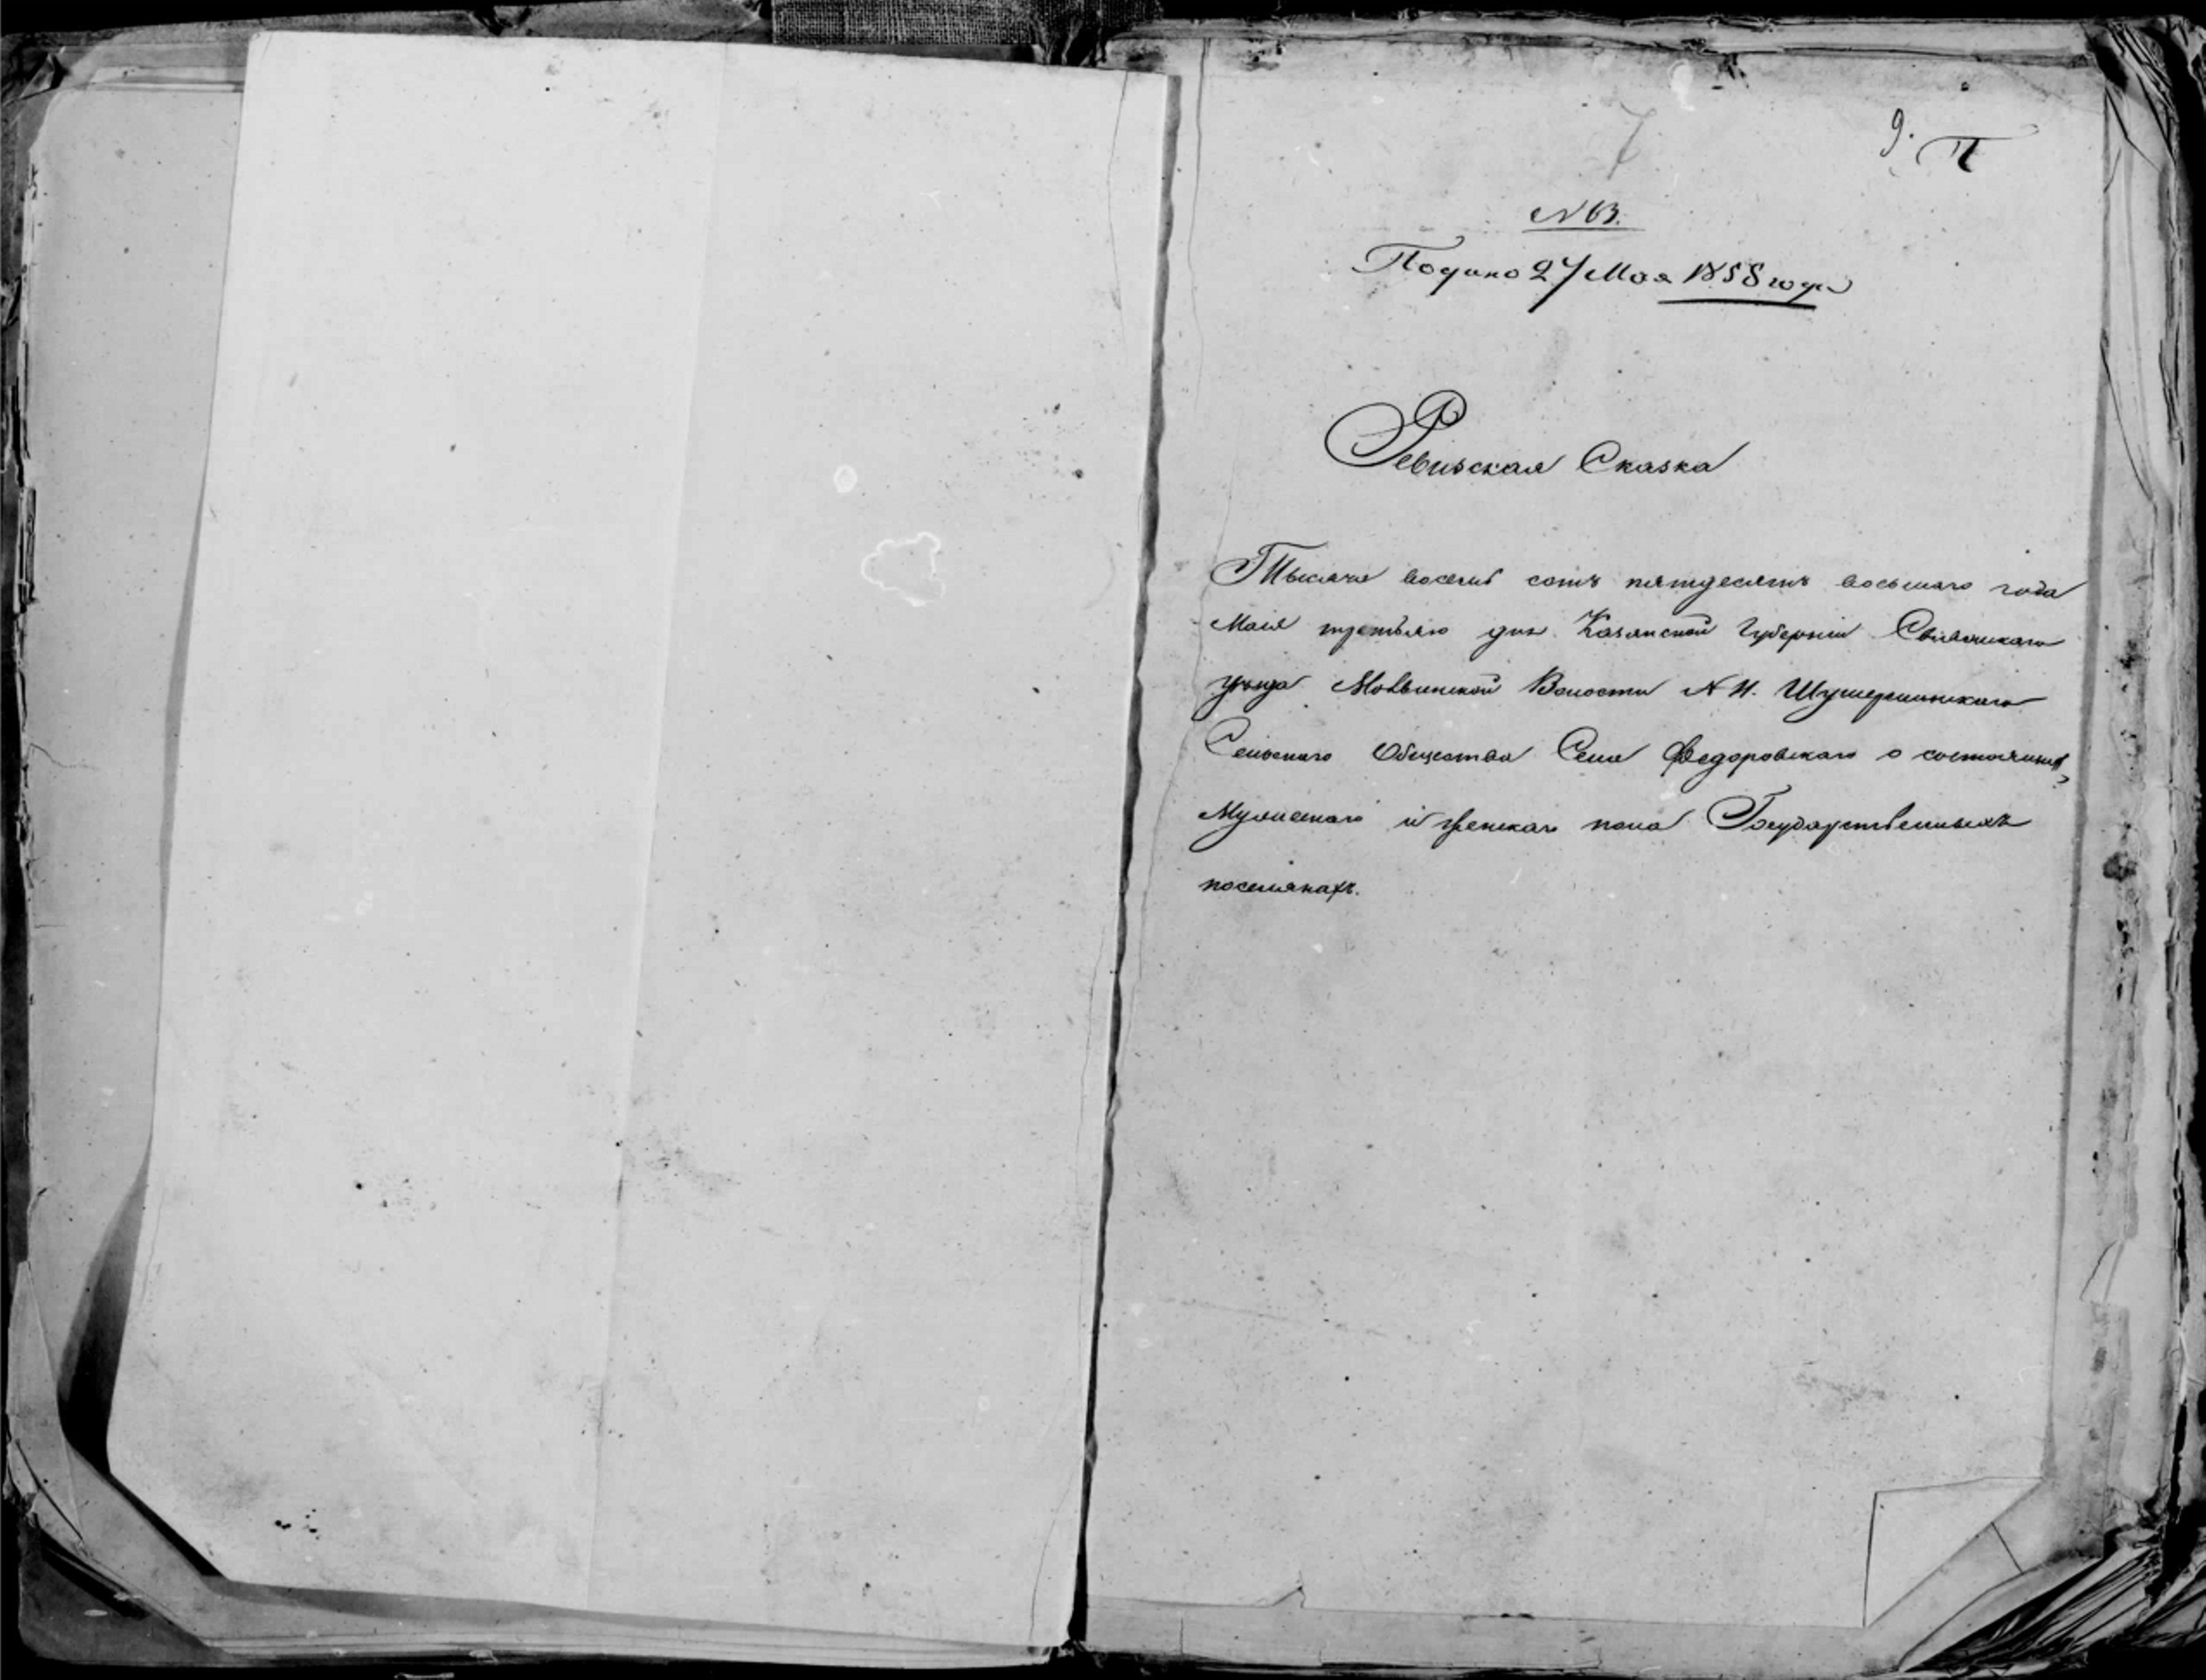 7
9.
N 63.
Подано 27 Мая 1858 года
Ревизская Сказка
Тысяча восемь сотъ пятдесятъ восьмаго года
Маія третьяго дня Казанской Губерніи Свіяжскаго
уѣзда Моквинской Волости № 11. Шушерминскаго
Сельскаго Общества Села Федоровскаго о состоящихъ
Мужескаго и женскаго пола Государственныхъ
поселянахъ.